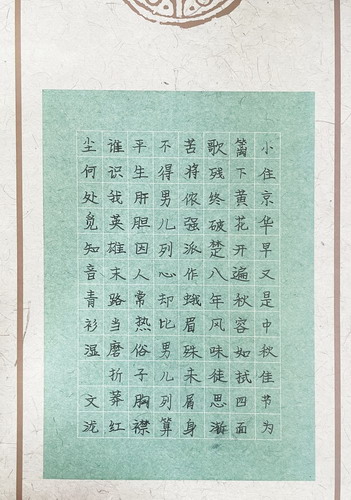 小住京华早又是中秋佳节为
篱下黄花开遍秋容如拭四面
歌残终破楚八年风味徒思浙
苦将侬强派作蛾眉殊未屑身
不得男儿列心却比男儿列算
平生肝胆因人常热俗子胸襟
谁识我英雄末路当磨折莽红
尘何处觅知音青衫湿
文泷